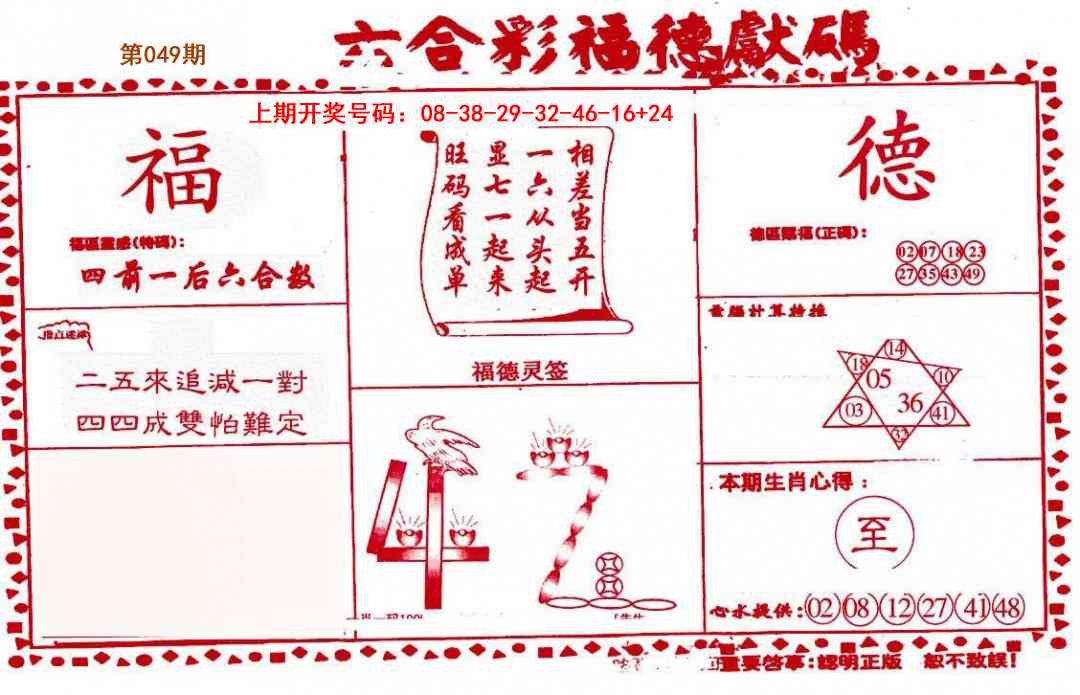 第049期
六合彩福德獻碼
上期开奖号码：08-38-29-32-46-16+24
福
福區靈感(特碼)：
四前一后六合数
二五來追減一對
四四成雙怕難定
相差当五开
一六从头起
显七一起来
旺码看成单
福德灵签
德
德區賜福(正碼)：
02 07 18 23
27 35 43 49
電腦計算特推
14
18 05 10
03 36 41
32
47
本期生肖心得：
至
心水提供：02 08 12 27 41 48
重要啓事：認明正版 恕不致誤！